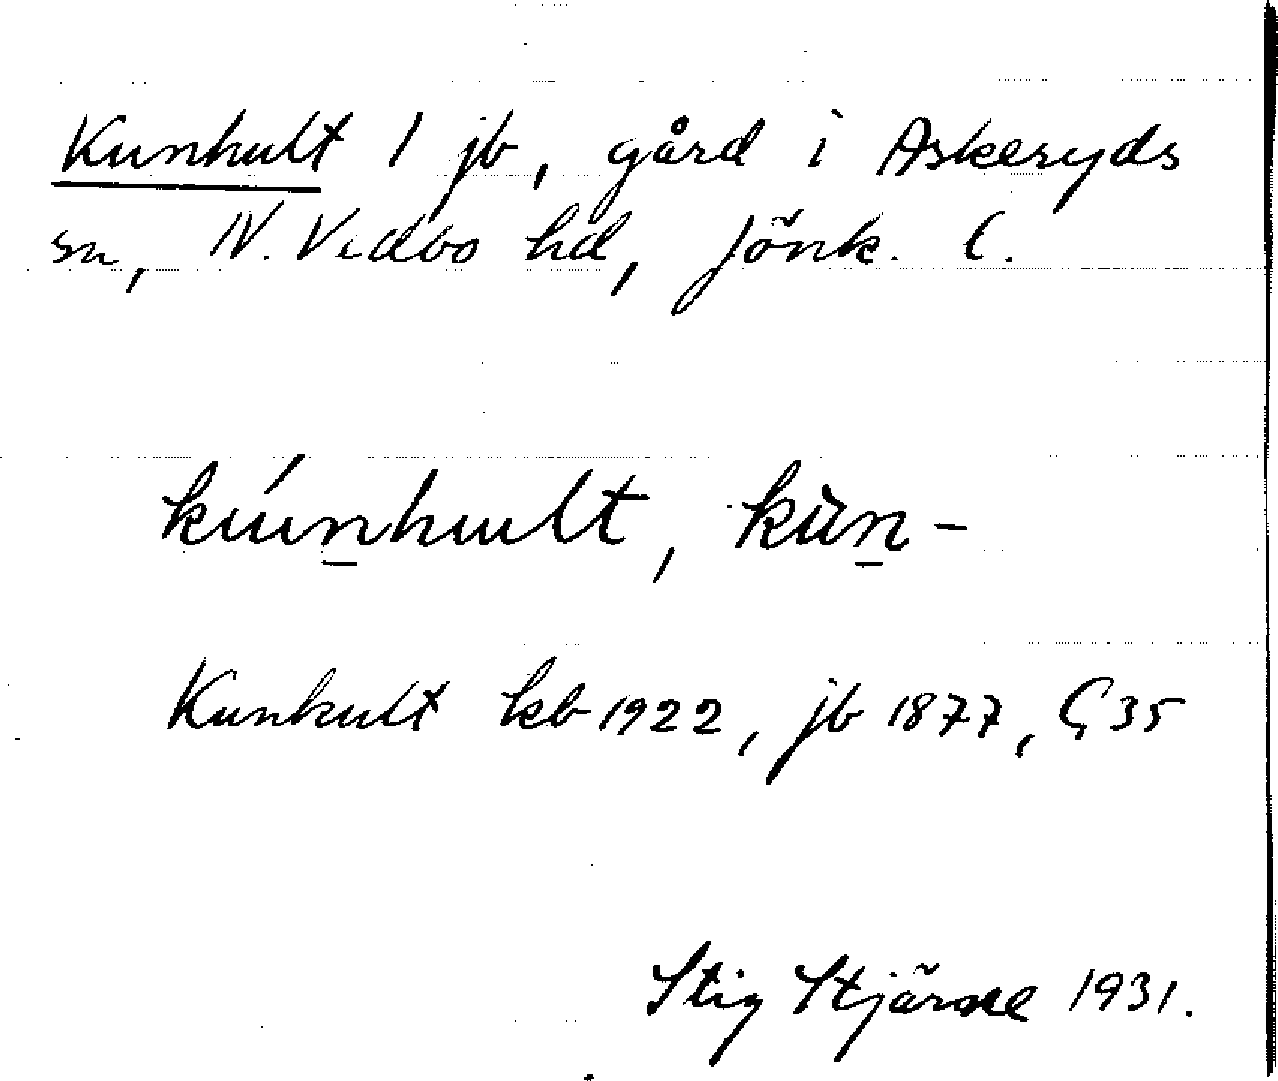 Kunhult 1 jb, gård i Askeryds
sn, N. Vedbo hd, Jönk. l.
kúnhult, kùn-
Kunhult kb 1922, jb 1877, G 35
Stig Stjärne 1931.